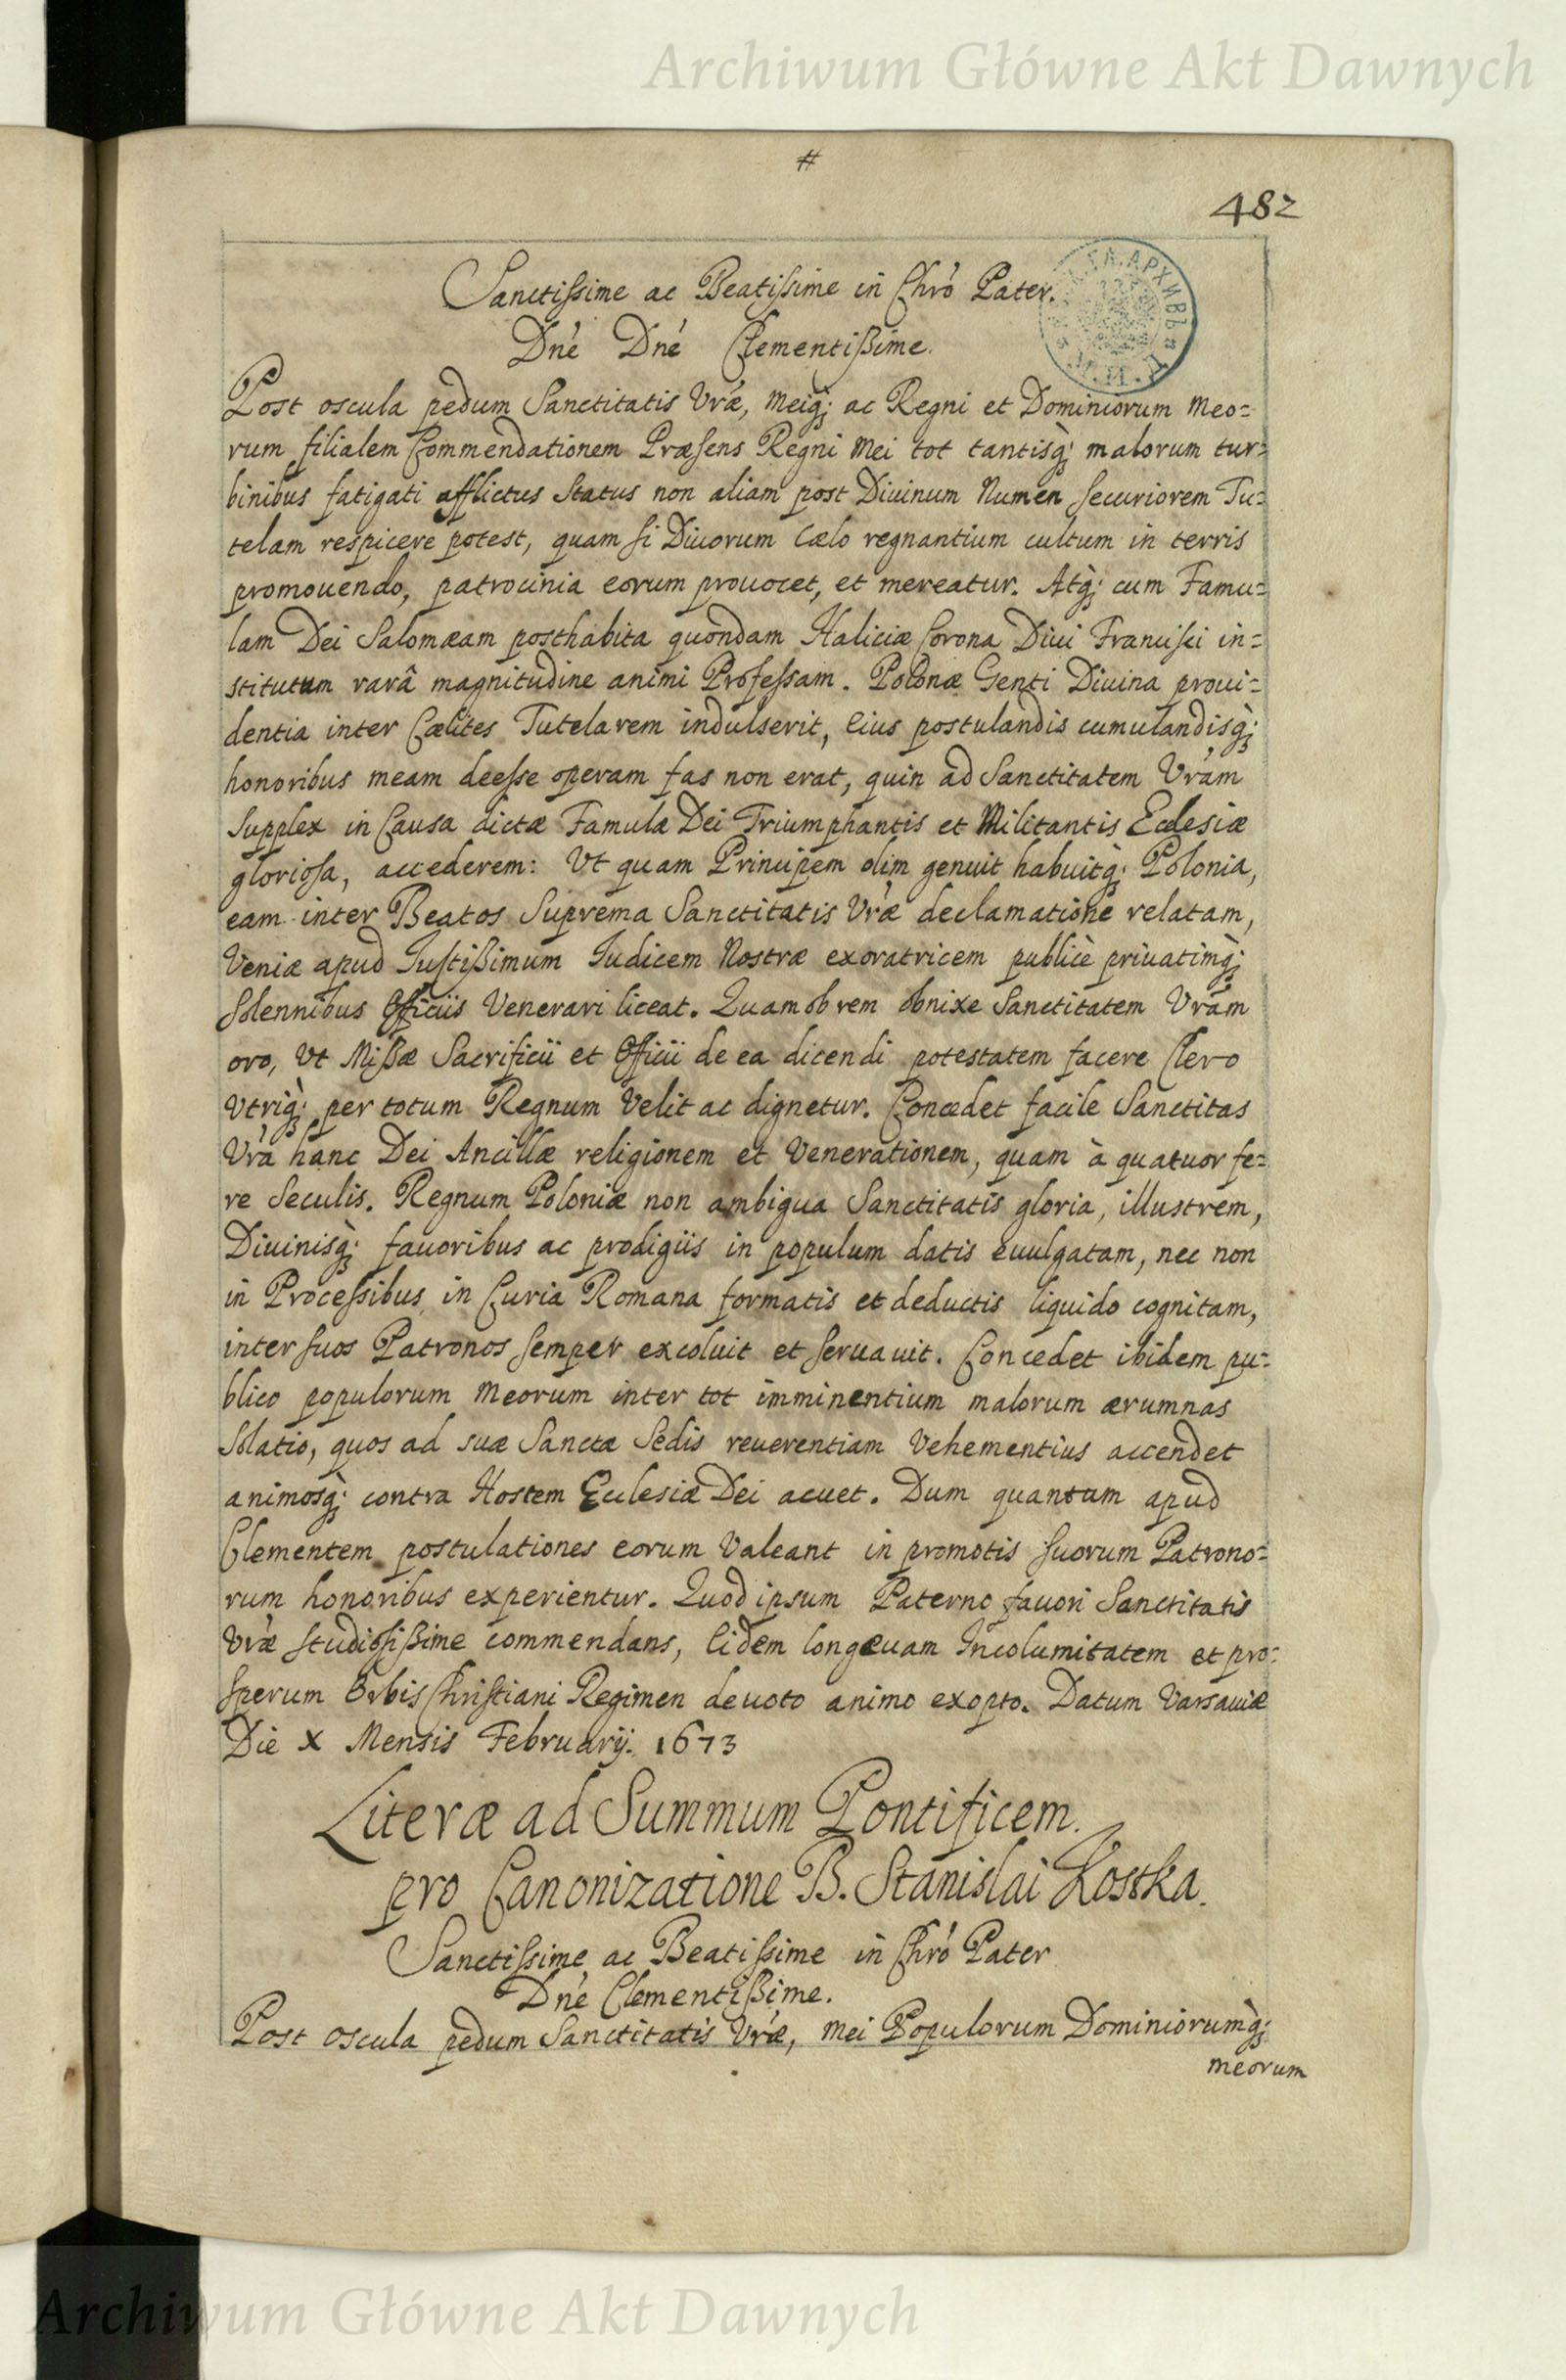 Archiwum Główne Akt Dawnych
#
482
Sanctissime ac Beatissime in Chrō Pater.
Dn̄e Dn̄e Clementissime.
Post oscula pedum Sanctitatis Vræ, Meiq; ac Regni et Dominiorum Meo=
rum filialem Commendationem Præsens Regni Mei tot tantisq; malorum tur=
binibus fatigati afflictus Status non aliam post Diuinum Numen securiorem Tu=
telam respicere potest, quam si Diuorum Cælo regnantium cultum in terris
promouendo, patrocinia eorum prouocet, et mereatur. Atq; cum Famu=
lam Dei Salomæam posthabita quondam Haliciæ Corona Diui Francisci in=
stitutum rarâ magnitudine animi Professam. Polonæ Genti Diuina proui=
dentia inter Cælites Tutelarem indulserit, Eius postulandis cumulandisq;
honoribus meam deesse operam fas non erat, quin ad Sanctitatem Vrām
Supplex in Causa dictæ Famulæ Dei Triumphantis et Militantis Ecclesiæ
gloriosa, accederem: Vt quam Principem olim genuit habuitq; Polonia,
eam inter Beatos Suprema Sanctitatis Vræ declamatione relatam,
Veniæ apud Justissimum Iudicem Nostræ exoratricem publicè priuatimq;
Solennibus Officiis Venerari liceat. Quamobrem obnixe Sanctitatem Vrām
oro, Vt Missæ Sacrificii et Officii de ea dicendi potestatem facere Clero
Vtriq; per totum Regnum Velit ac dignetur. Concedet facile Sanctitas
Vrā hanc Dei Ancillæ religionem et Venerationem, quam à quatuor fe=
re Seculis. Regnum Poloniæ non ambigua Sanctitatis gloria, illustrem,
Diuinisq; fauoribus ac prodigiis in populum datis euulgatam, nec non
in Processibus in Curia Romana formatis et deductis liquido cognitam,
inter suos Patronos semper excoluit et seruauit. Concedet ibidem pu=
blico populorum Meorum inter tot imminentium malorum ærumnas
Solatio, quos ad suæ Sanctæ Sedis reuerentiam Vehementius accendet
animosq; contra Hostem Ecclesiæ Dei acuet. Dum quantum apud
Clementem postulationes eorum Valeant in promotis suorum Patrono=
rum honoribus experientur. Quod ipsum Paterno fauori Sanctitatis
Vræ studiosissime commendans, Eidem longæuam Incolumitatem et pro=
sperum Orbis Christiani Regimen deuoto animo exopto. Datum Varsauiæ
Die X Mensis Februarij. 1673
Literæ ad Summum Pontificem.
pro Canonizatione B. Stanislai Kostka.
Sanctissime ac Beatissime in Chrō Pater
Dn̄e Clementissime.
Post oscula pedum Sanctitatis Vræ, Mei Populorum Dominiorumq;
meorum
Archiwum Główne Akt Dawnych